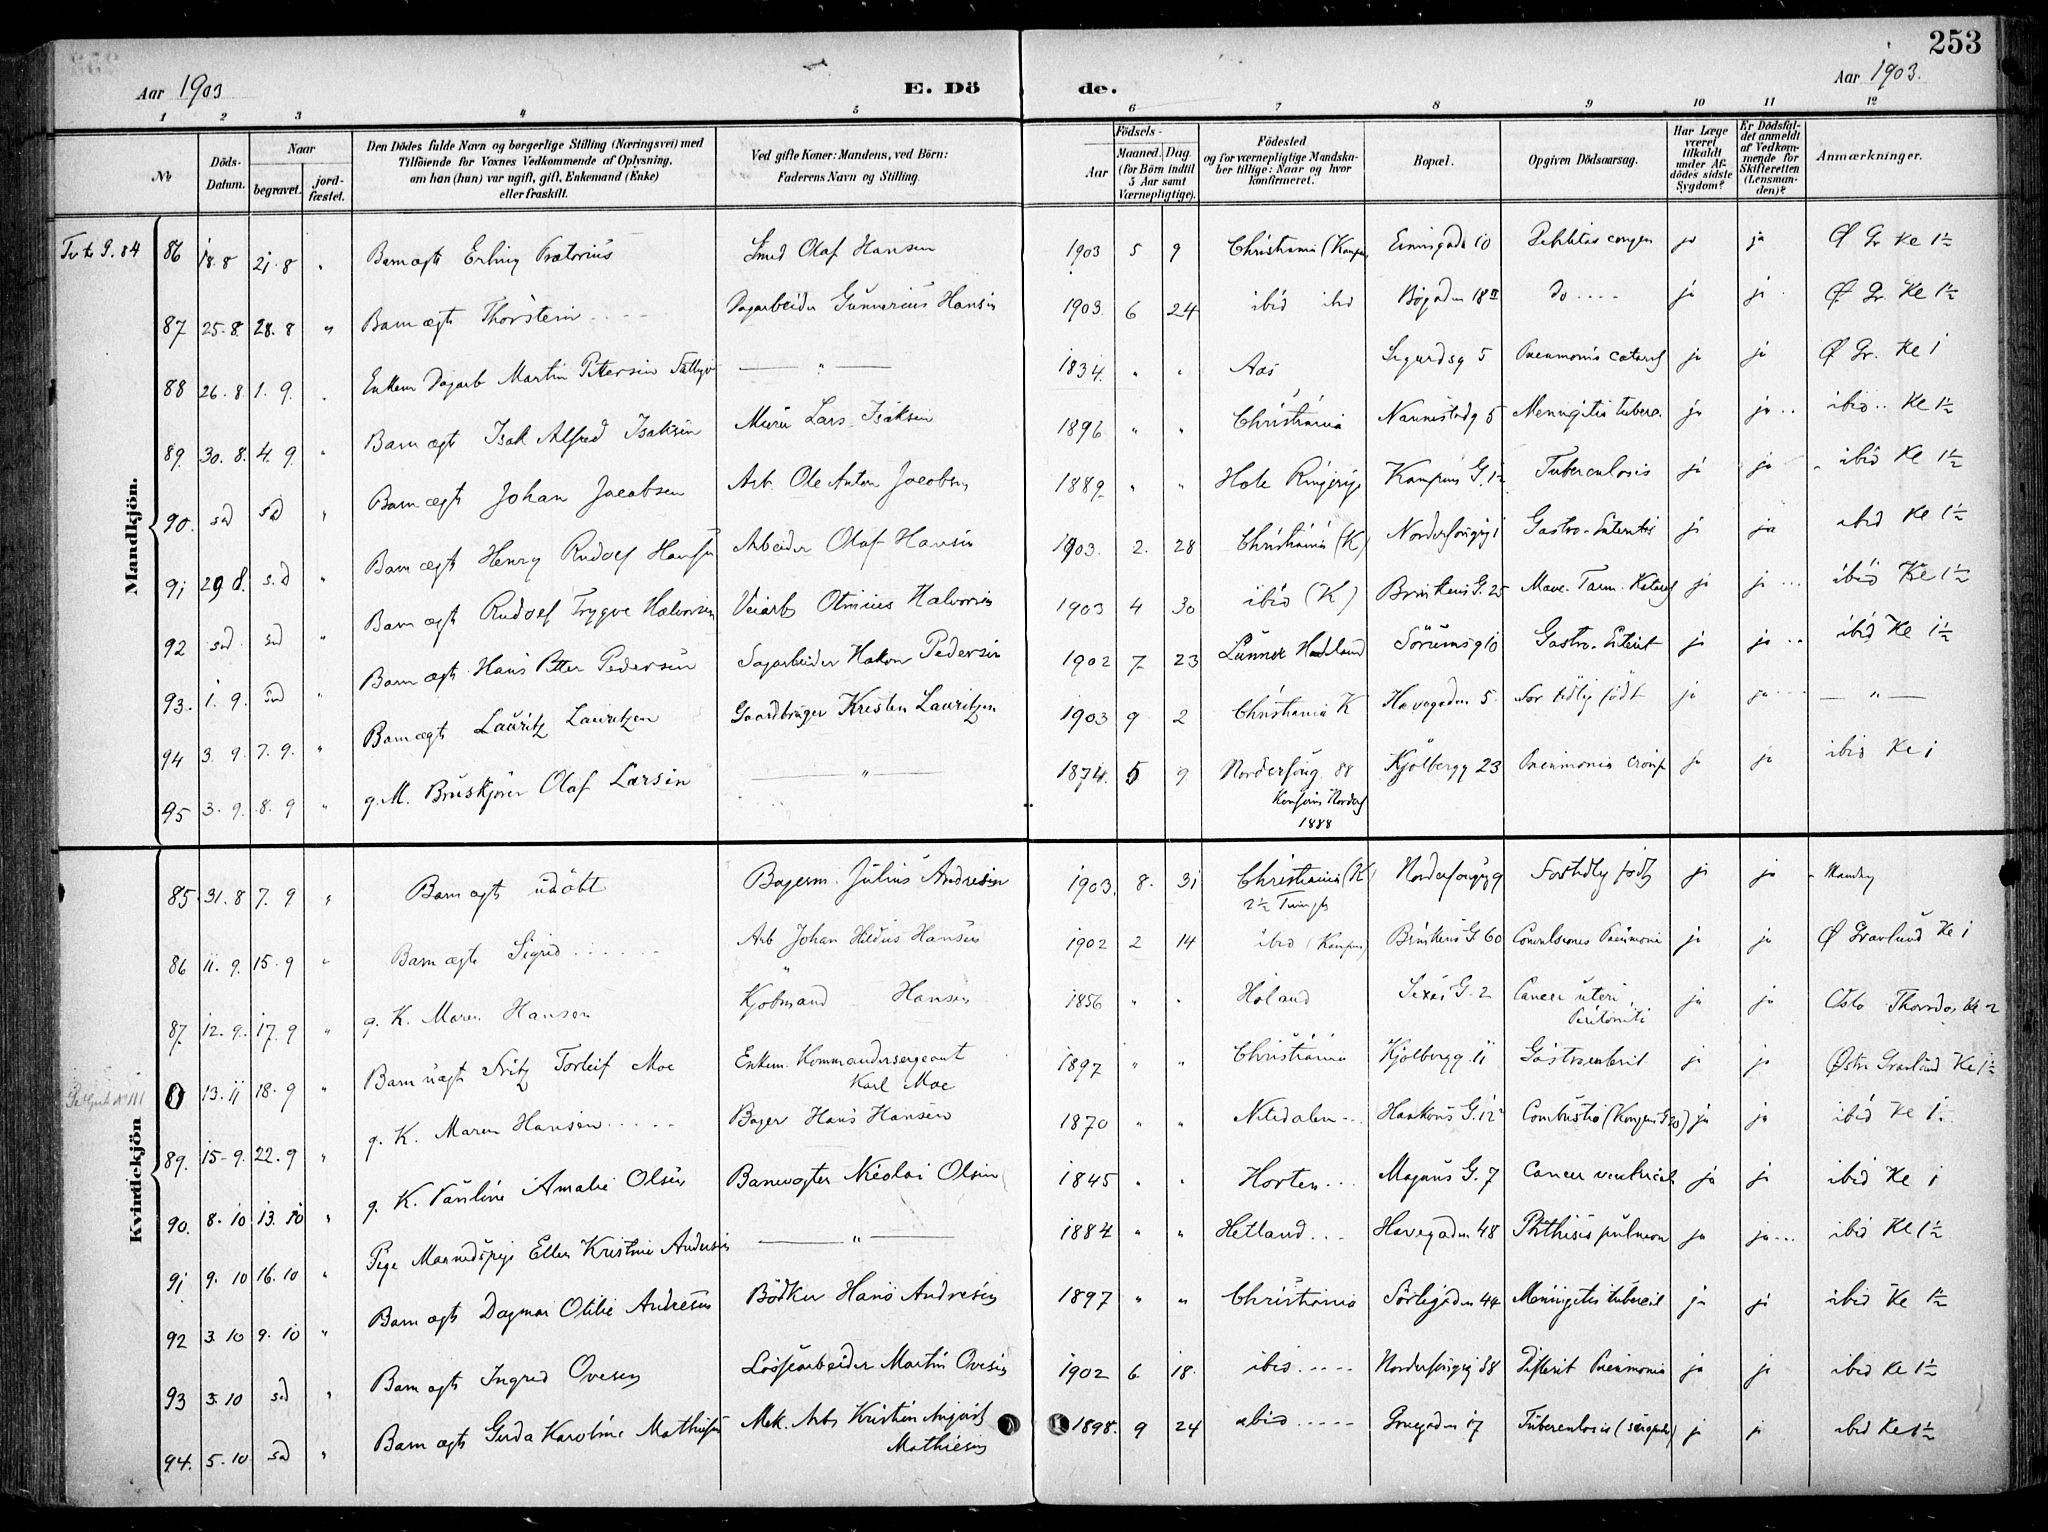 253
Aar 1903
E. Dö de.
Aar 1903.
1 2 3 4 5 6 7 8 9 10 11 12
No
Döds-Datum.
Naar
begravet.
jord-fæstet.
Den Dödes fulde Navn og borgerlige Stilling (Næringsvei) med
Tilföiende for Voxnes Vedkommende af Oplysning,
om han (hun) var ugift, gift, Enkemand (Enke)
eller fraskilt.
Ved gifte Koner: Mandens, ved Börn:
Faderens Navn og Stilling.
Födsels-
Aar
Maaned. Dag.
(for Börn indtil
5 Aar samt
Værnepligtige).
Födested
og for værnepligtige Mandska-
ber tillige: Naar og hvor
konfirmeret.
Bopæl.
Opgiven Dödsaarsag.
Har Læge
været
tilkaldt
under Af-
dödes sidste
Sygdom?
Er Dödsfal-
det anmeldt
af Vedkom-
mende for
Skifteretten
(Lensman-
den)?
Anmærkninger.
Mandkjön.
86 18.8 21.8 " Barn ægte Erling Prætorius Smed Olaf Hansen 1903 5 9 Christiania (Kampen) 10 ja ja Ø Gr Ke 1½
87 25.8. 28.8 " Barn ægte Thorstein Dagarbeider Gunnerius Hansen 1903. 6 24 ibid ibid Bögaden 18 II do ja ja Ø Gr. Ke 1½
88 26.8. 1.9. " Enkem Dagarb Martin Pettersen — " — 1834. " " Aas Sigurdsg 5 Pneumonia catarrh ja ja Ø Gr. Ke 1
89. 30.8. 4.9. " Barn ægte Isak Alfred Isaksen Murer Lars Isaksen 1896 " " Christiania Nannestadg 5 Meningitis tuberc. ja ja ibid Ke 1½
90. sd sd " Barn ægte Johan Jacobsen Arb. Ole Anton Jacobsen 1889 " " Hole Ringerige Kampens G. 12 Tuberculosis ja ja ibid Ke 1½
91 29 8. s.d " Barn ægte Henry Rudolf Hansen Arbeider Olaf Hansen 1903. 2. 28 Christiania (K) Norderhovg 1 Gastro-Enteritis ja ja ibid Ke 1½
92 sd sd " Barn ægte Rudolf Trygve Halvorsen Veiarb Otinius Halvorsen 1903 4 30 ibid (K) Brinkens G. 25 Mave. Tarm. Katarrh ja ja ibid Ke 1½
93. 1.9. sd " Barn ægte Hans Petter Pedersen Sagarbeider Hakon Pedersen 1902 7 23 Lunner Hadeland Sörumsg 10 Gastro-Enterit ja ja ibid Ke 1½
94 3.9. 7.9. " Barn ægte Lauritz Lauritzen Gaardbruger Kristen Lauritzen 1903 9 2 Christiania K Havegaden 5 For tidlig født ja ja — " —
95 3.9. 8.9 " g. M. Bruskjører Olaf Larsen — " — 1874. 5 9 88 Kjølbergg 23 Pneumonia croup ja ja ibid Ke 1
1888
Kvindekjön
85 31.8 7.9 " Barn ægte udöbt Bogerm. Julius Andresen 1903. 8. 31 Christiania (K) 9 For tidlig født ja ja
86 11.9. 15.9 " Barn ægte Sigrid Arb Johan Hansen 1902 2 14 ibid (Kampen) Brinkens G 60 Convulsiones Pneumoni ja ja Ø Gravlund Ke 1
87. 12.9. 17.9 " g. K. Maren Hansen Kjøbmand Hansen 1856 " " Høland G. 2 Cancer uteri, Peritoniti ja ja Oslo Ke 2
0 13.11 18.9 " Barn uægte Fritz Torleif Moe Enkem. Kommandersergeant Karl Moe 1897 " " Christiania Kjølbergg. 11 Gastroenterit ja ja Østre Gravlund Ke 1½
89. 15.9. 22.9 " g. K. Maren Hansen Bager Hans Hansen 1870 " " Nitedalen Haakons G. 12 Combustio (Kongens G 20) ja ja ibid Ke 1.
90. 8.10 13.10 " g. K. Pauline Amalie Olsen Banevogter Nicolai Olsen 1845 " " Horten Magnus G. 7 Cancer ventricul ja ja ibid Ke 1
91 9.10 16.10 " Pige Ellen Kristine Andersen — " — 1884 " " Hetland Havegaden 48 Phthisis pulmon ja ja ibid Ke 1½
92 3.10 9.10 " Barn ægte Dagmar Otilie Andresen Bödker Hans Andresen 1897 " " Christiania Sörligaden 44 Meningitis tubercul ja ja ibid Ke 1½
93 3.10 sd " Barn ægte Ingrid Ovesen Lossearbeider Martin Ovesen 1902 6 18. ibid 58 Difterit Pneumonia ja ja ibid Ke 1½
94. 5.10 sd " Barn ægte Gerda Karoline Mathisen Mek. Arb Kristen Mathiesen 1898. 9 24 ibid 17 Tuberculosis ja ja ibid Ke 1½